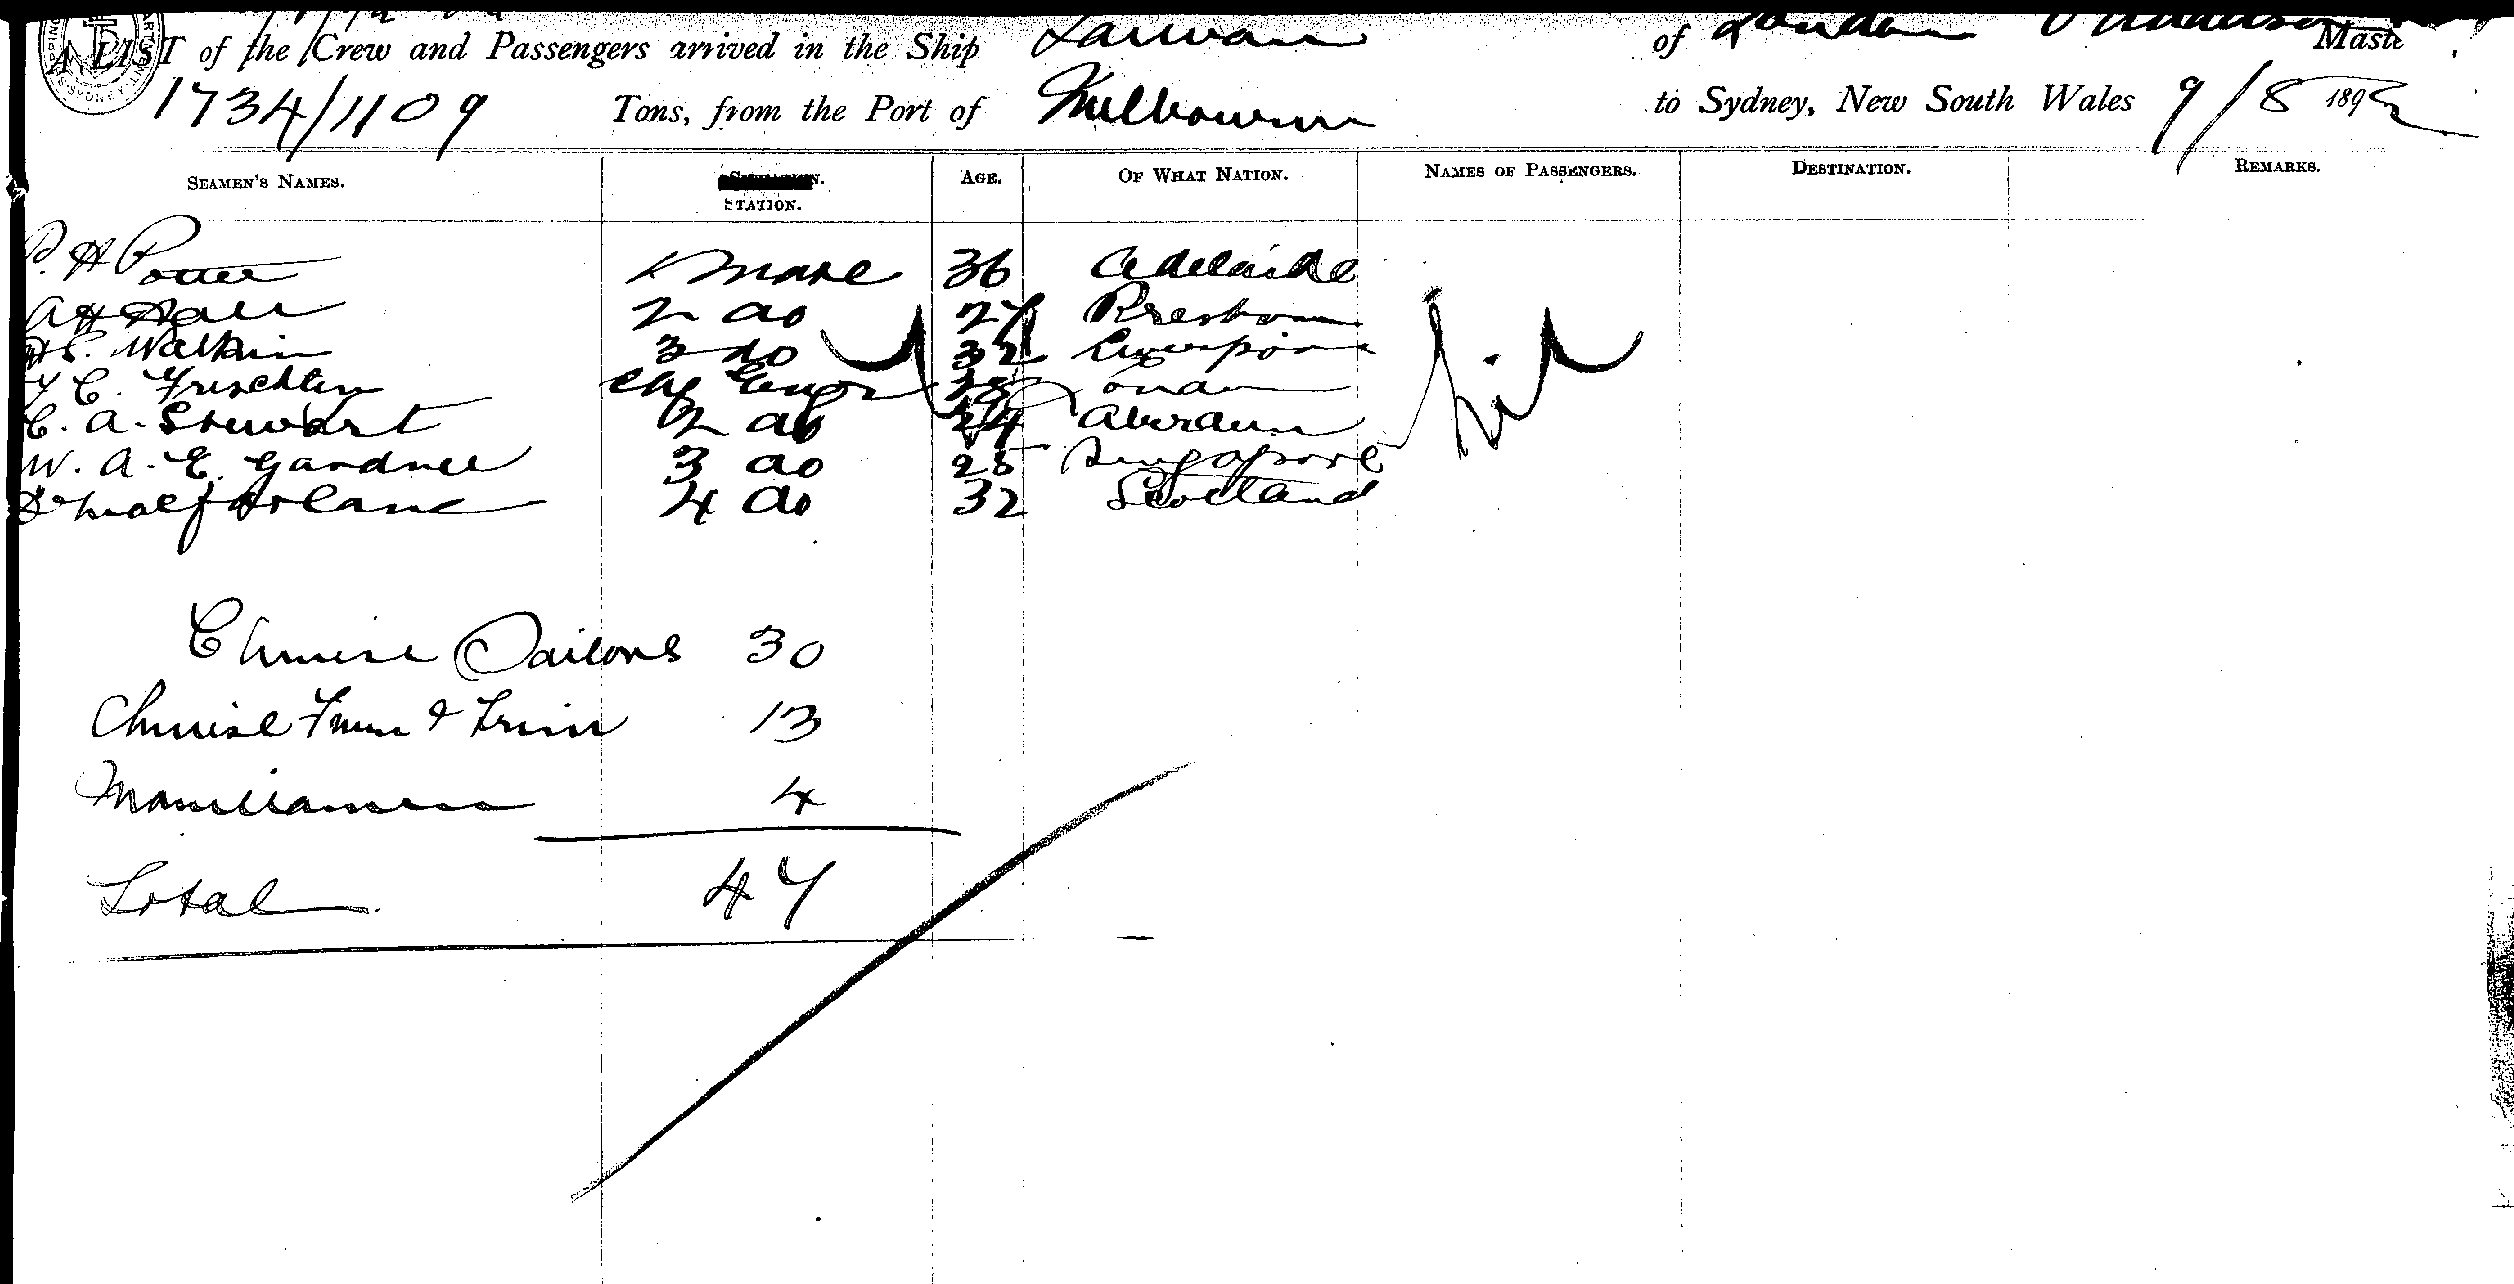 A LIST of the Crew and Passengers arrived in the Ship Taiwan of London Master
1734/1109 Tons, from the Port of Melbourne to Sydney, New South Wales 9/8 1892
SEAMEN'S NAMES. STATION. AGE. OF WHAT NATION. NAMES OF PASSENGERS. DESTINATION. REMARKS.
P. H Potter 1 Mate 36 Adelaide
A H 2 do 27 Preston nil
Watkin 3 do 32 Liverpool
C. Engr London
C. A. Stewart 2 do 24 Aberdeen
W. A. E. Gardner 3 do 25 Singapore
4 do 32 Scotland
Chinese Sailors 30
Chinese 13
4
Total 47